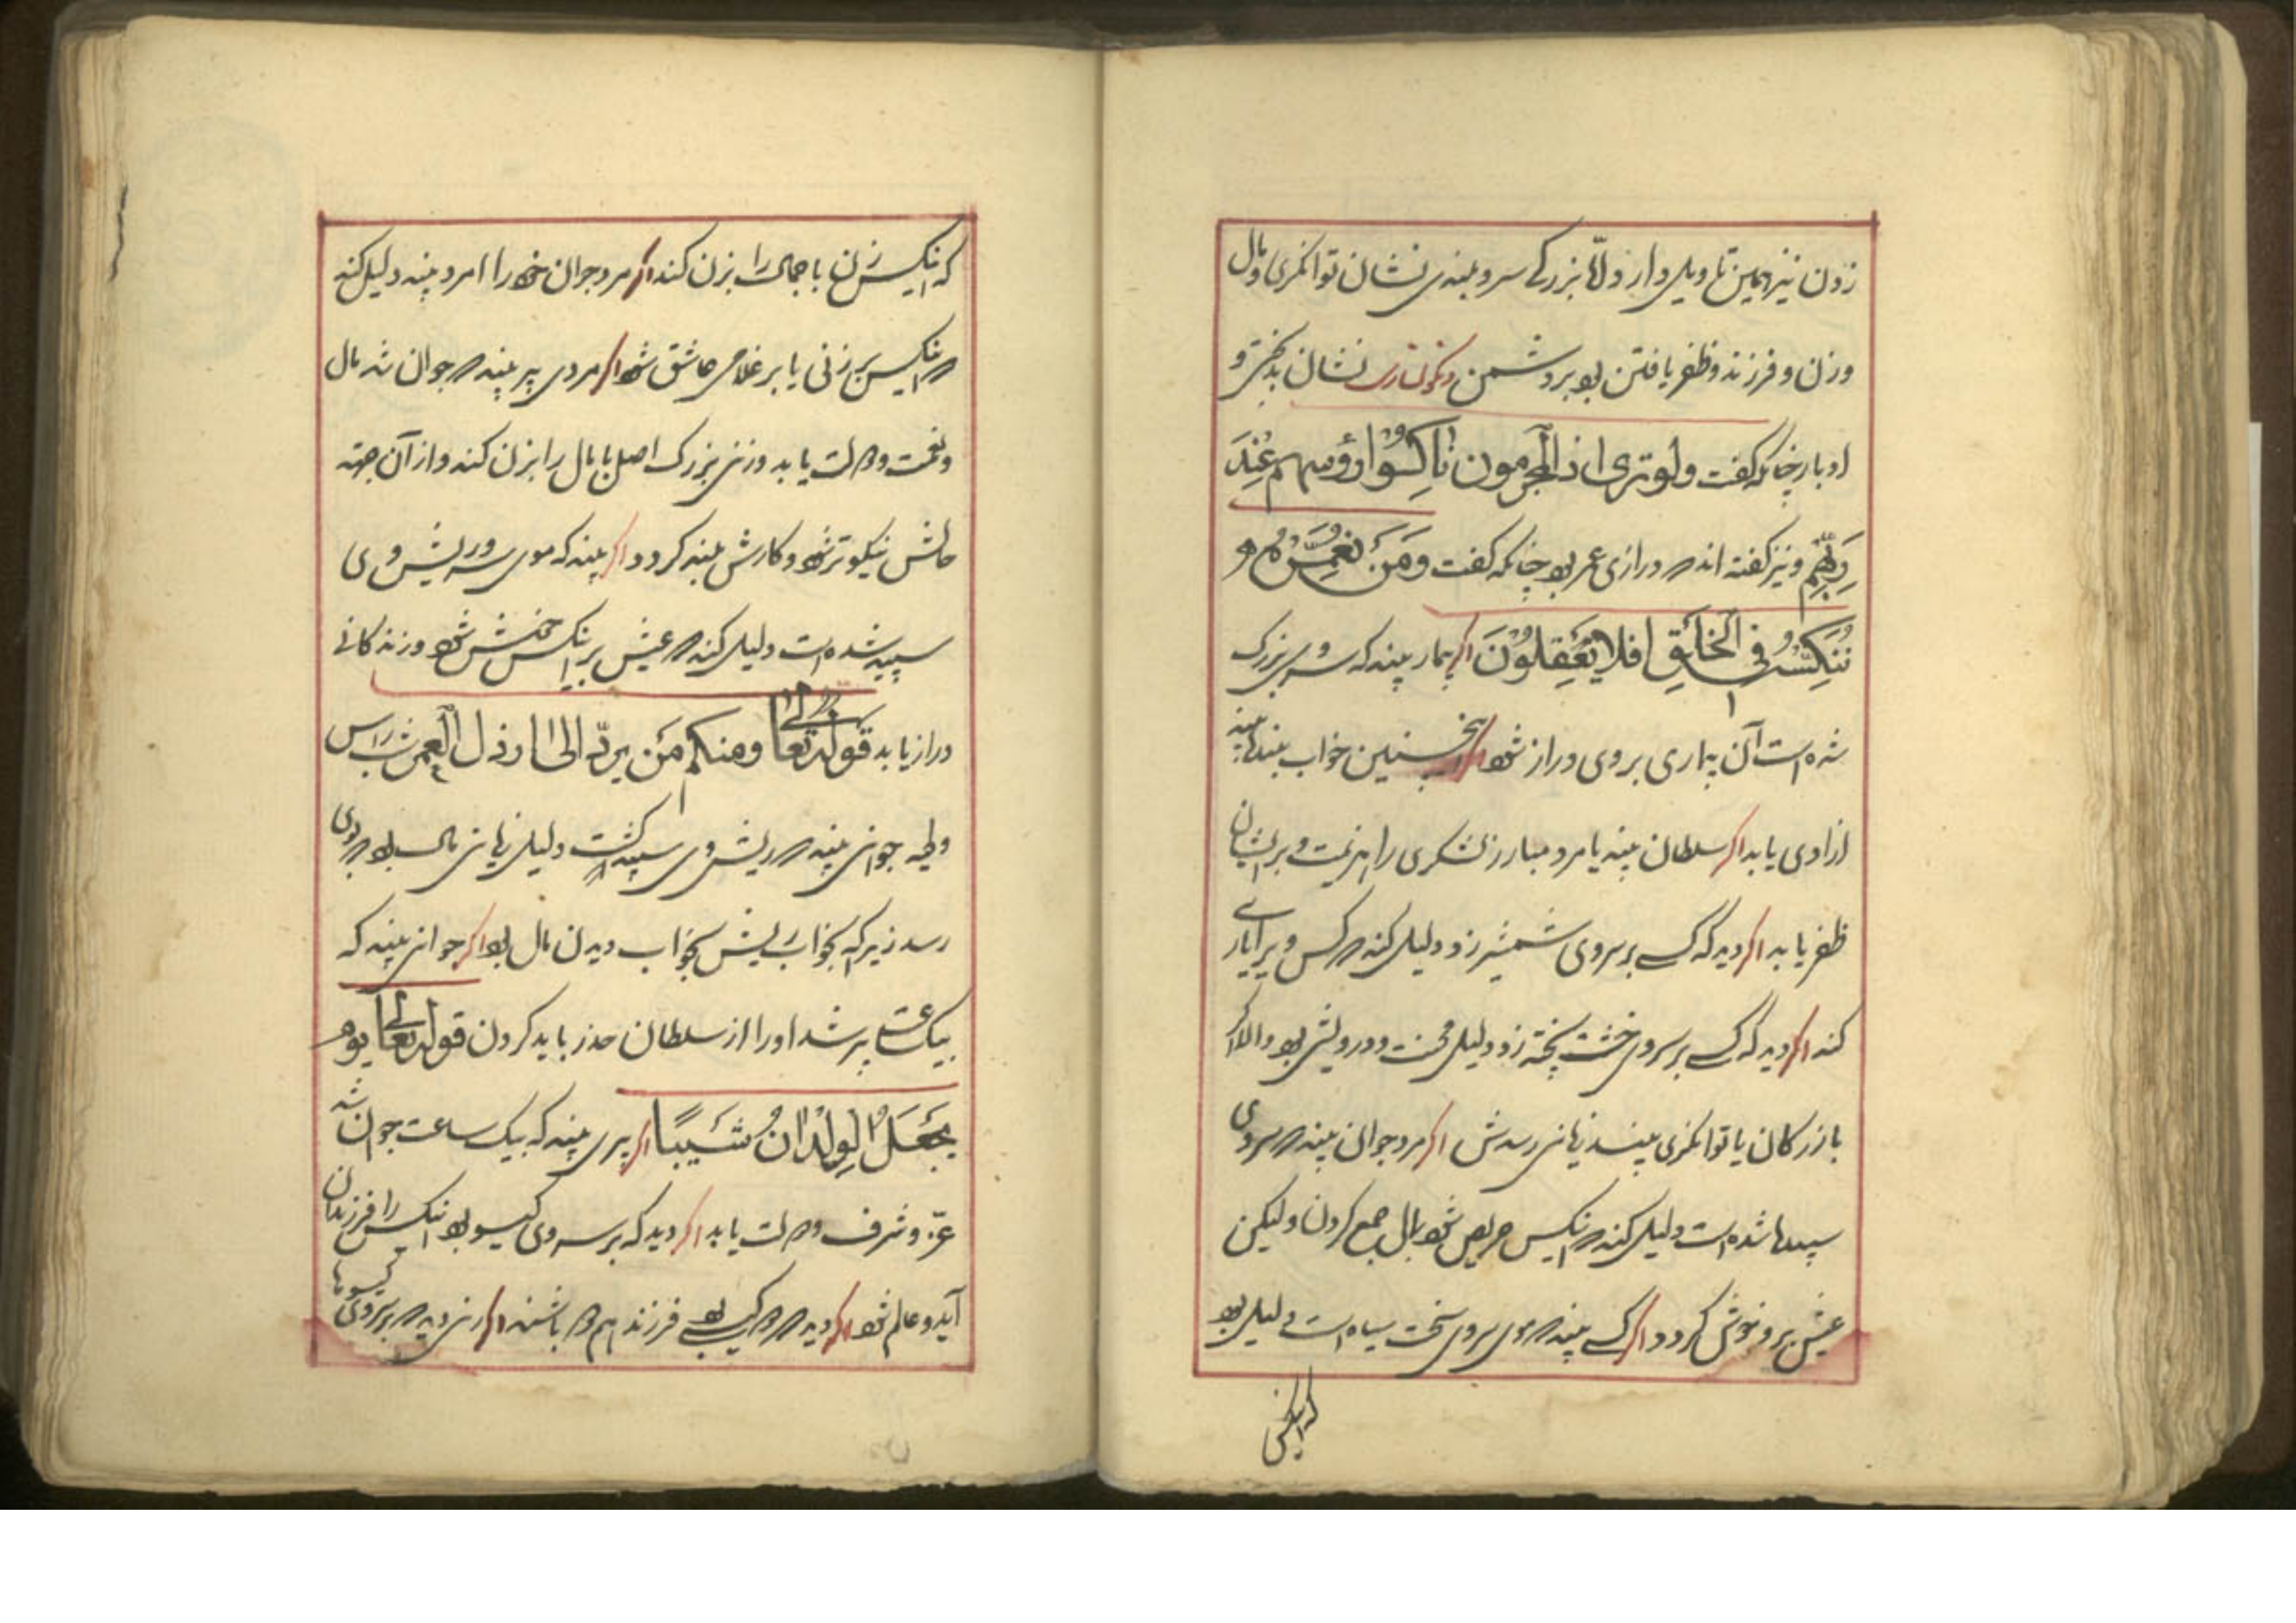 زدن نیز همین تاویل دارد و اما بزرگی سر و بلندی نشان توانگری و مال
و زن و فرزند و ظفر یافتن بود بر دشمن و نگونساری نشان بدبختی و
ادبار چنانکه گفت ولو تری اذ المجرمون ناکسوا رؤسهم عِندَ
رَبِّهِم و نیز گفته اند که درازی عمر بود چنانکه گفت وَمَن نعمّره
نُنَکِّسْهُ فی الخَلقِ افلا یَعقِلُونَ اگر بیمار بیند که سر وی بزرگ
شده است آن بیماری بر وی دراز شود اگر همچنین خواب بنده بیند
ازادی یابد اگر سلطان بیند یا مرد مبارز لشکری را هزیمت و بر ایشان
ظفر یابد اگر دید که کسی بر سر وی شمشیر زد دلیل کند که کس ویرا یاری
کند اگر دید که کسی بر سر وی خشت پخته زد دلیل محنت و درویشی بود و الا اگر
بازرگان یا توانگری بیند زیانی رسدش اگر مرد جوان بیند که سر وی
سپید شده است دلیل کند که انکس حریص شود بمال جمع کردن و لیکن
عیش بر وی خوش گردد اگر کسی بیند که موی سر وی سخت سیاه است دلیل بود
که انکس
که انکس زن با جمال را بزن کند اگر مرد جوان خود را امرد بیند دلیل کند
که انکس بر زنی یا بر غلامی عاشق شود اگر مردی پیر بیند که جوان شد مال
و نعمت و دولت یابد و زنی بزرگ اصل با مال را بزن کند و از آن جهته
حالش نیکوتر شود و کارش بلند گردد اگر بیند که موی سر و ریش وی
سپید شده است دلیل کند که عیش بر انکس خوش شود و زندگانی
دراز یابد قوله تعالی ومنکم مَن یردّ الی ارذل العمر
جوانی بیند که ریش وی سپید گشت دلیل زیانی مال بود که بوی
رسد زیرا که بخواب ریش بخواب دیدن مال بود اگر جوانی بیند که
بیک ساعت پیر شد او را از سلطان حذر باید کردن قوله تعالی یوم
یجعَلُ الوِلدَانُ شَیبًا اگر پیری بیند که بیک ساعت جوان شد
عزّ و شرف و دولت یابد اگر دید که بر سر وی گیسو بود انکس را فرزندان
آید و عالم شود اگر دید که دو گیسو بود فرزند هم دو باشند اگر زنی دید که بر سر وی گیسوها